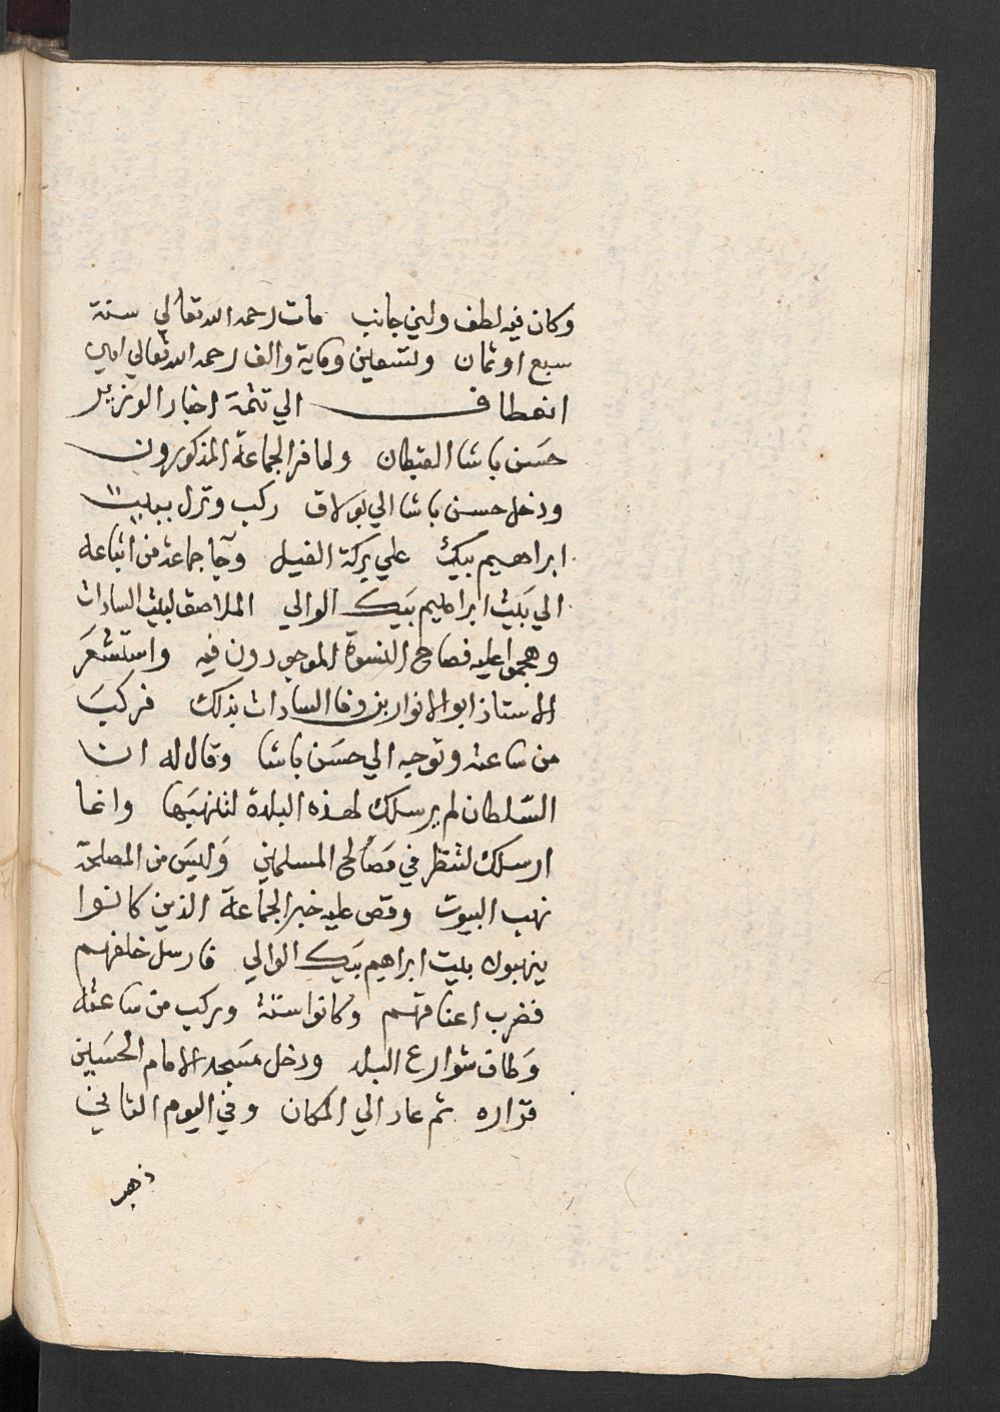 وكان فيه لطف ولين جانب مات رحمه الله تعالي سنة
سبع او ثمان وتسعين وماية والف رحمه الله تعالي امين
انعطاف الي تتمة اخبار الوزير
حسن باشا القبطان ولما فر الجماعة المذكورون
ودخل حسن باشا الي بولاق ركب ونزل ببيت
ابراهيم بيك علي بركة الفيل وجا جماعة من اتباعه
الي بيت ابراهيم بيك الوالي الملاصق لبيت السادات
وهجموا عليه فصاح النسوة الموجودون فيه واستشعر
الاستاذ ابو الانوار بن وفا السادات بذلك فركب
من ساعته وتوجه الي حسن باشا وقال له ان
السلطان لم يرسلك لهذه البلدة لتنهبها وانما
ارسلك لتنظر في مصالح المسلمين وليس من المصلحة
نهب البيوت وقص عليه خبر الجماعة الذين كانوا
ينهبون بيت ابراهيم بيك الوالي فارسل خلفهم
فضرب اعناقهم وكانوا ستة وركب من ساعته
وطاف شوارع البلد ودخل مسجد الامام الحسين
فزاره ثم عاد الي المكان وفي اليوم الثاني
ذهب